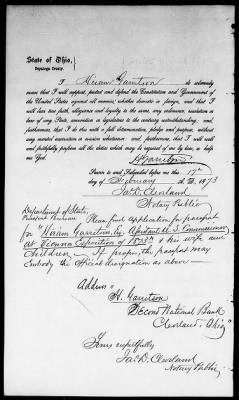 State of Ohio,
Cuyahoga County.
I Hiram Garretson do solemnly
swear that I will support, protect and defend the Constitution and Government of
the United States against all enemies, whether domestic or foreign, and that I will
bear true faith, allegiance and loyalty to the same, any ordinance, resolution or
law of any State, convention or legislature to the contrary notwithstanding; and
further, that I do this with a full determination, pledge and purpose, without
any mental reservation or evasion whatsoever; and further, that I will well
and faithfully perform all the duties which may be required of me by law, so help
me God.
H Garretson
Sworn to and Subscribed before me this 17th
day of February A.D. 1873
Jas D. Cleveland
Notary Public
Department of State,
Please find application for passport
for "Hiram Garretson, Esq Assistant U.S. Commissioner
at Vienna Exposition of 1873" & his wife and
Children – If proper, the passport may
Embody the Official designation as above –
Address
H. Garretson
Second National Bank
Cleveland, Ohio"
Yours respectfully
Jas D. Cleveland
Notary Public